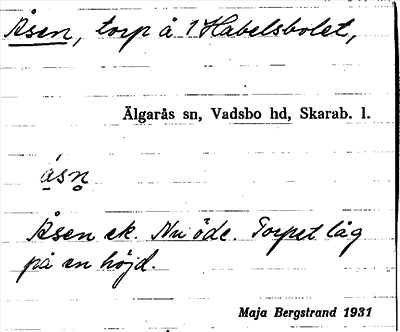 Åsen, torp å 1 Habelsbolet,
Älgarås sn, Vadsbo hd, Skarab. l.
ásn̥
Åsen ek. Nu öde. Torpet låg
på en höjd.
Maja Bergstrand 1931